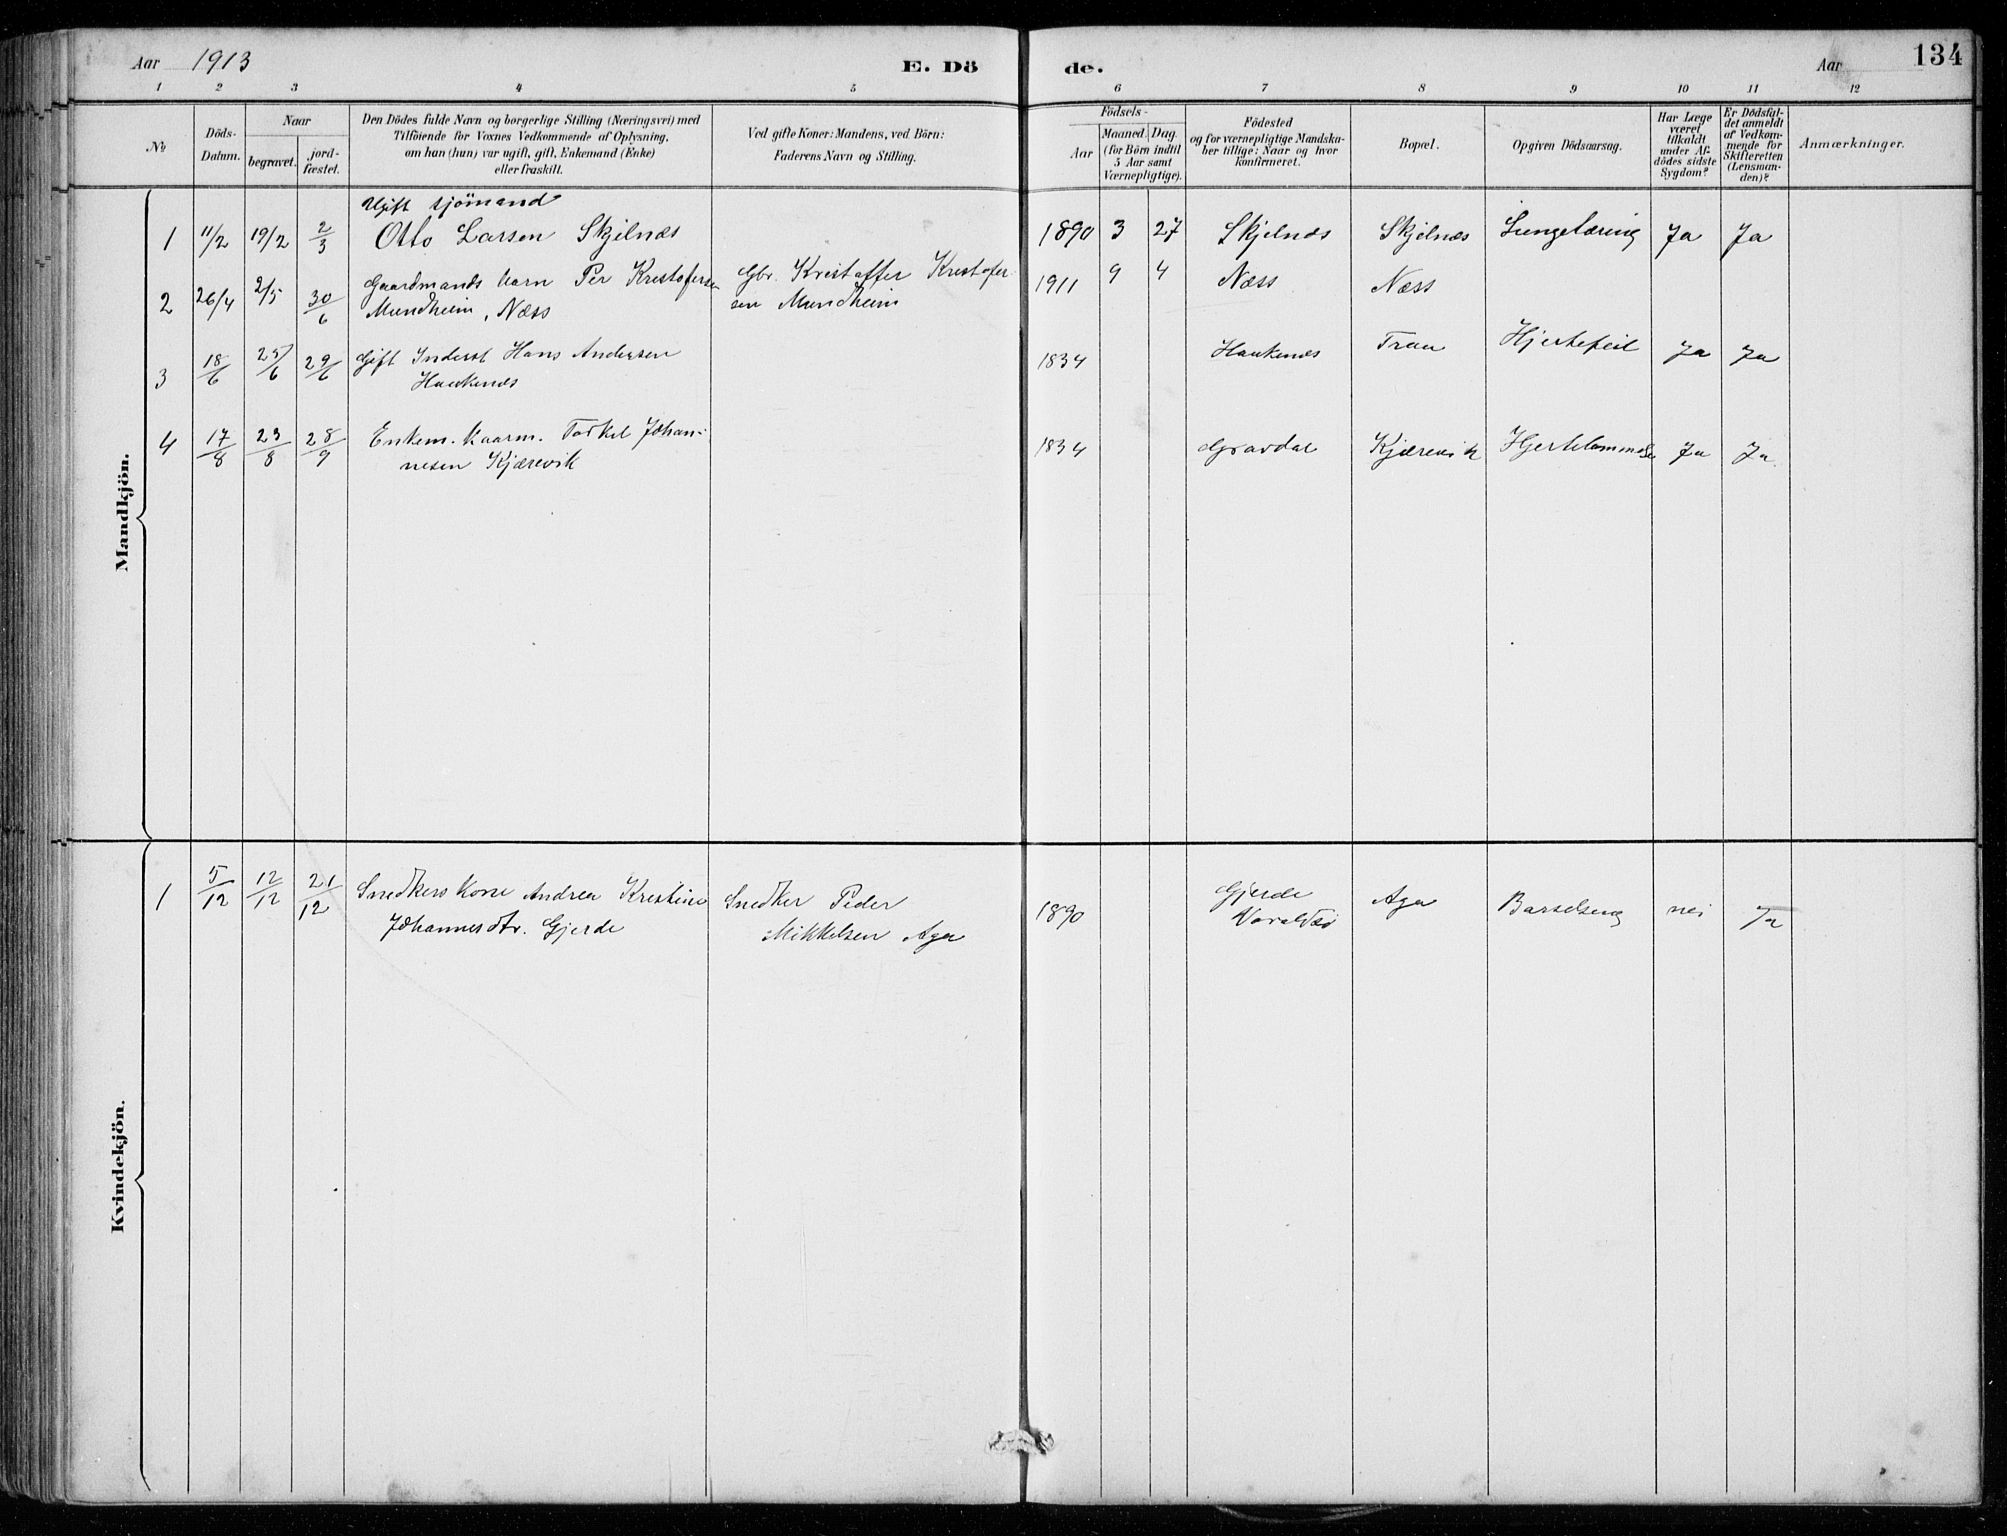 Aar 1913
E. Dö
de.
Aar
134
1 2 3 4 5 6 7 8 9 10 11 12
No
Döds-
Datum.
Naar
begravet.
jord-
fæstet.
Den Dödes fulde Navn og borgerlige Stilling (Næringsvei) med
Tilföiende for Voxnes Vedkommende af Oplysning,
om han (hun) var ugift, gift, Enkemand (Enke)
eller fraskilt.
Ved gifte Koner: Mandens, ved Börn:
Faderens Navn og Stilling.
Födsels-
Aar
Maaned. Dag.
(for Börn indtil
5 Aar samt
Værnepligtige).
Födested
og for værnepligtige Mandska-
ber tillige: Naar og hvor
konfirmeret.
Bopæl.
Opgiven Dödsaarsag.
Har Læge
været
tilkaldt
under Af-
dödes sidste
Sygdom?
Er Dödsfal-
det anmeldt
af Vedkom-
mende for
Skifteretten
(Lensman-
den)?
Anmærkninger.
Mandkjön.
Ugift sjömand
1 11/2 19/2 2/3 Otto Larsen Skjelnæs 1890 3 27 Skjelnæs Skjelnæs Lungetæring Ja Ja
2 26/4 2/5 30/6 Gaardmands barn Per Kristofersen Gbr. Kristoffer Kristofer- 1911 9 4 Næss Næss
Mundheim, Næss sen Mundheim
3 18/6 25/6 29/6 Gift Inderst Hans Andersen 1834 Haukenæs Traa Hjertefeil Ja Ja
Haukenæs
4 17/8 23/8 28/9 Enkem. kaarm. Torkel Johan- 1834 Gravdal Kjærevik Hjertelammelse Ja Ja
nesen Kjærevik
Kvindekjön.
1 5/12 12/12 21/12 Snedkers Kone Andrea Kristine Snedker Peder 1890 Gjerde Aga Barselseng nei Ja
Johannesdtr. Gjerde Mikkelsen Aga Varaldsö